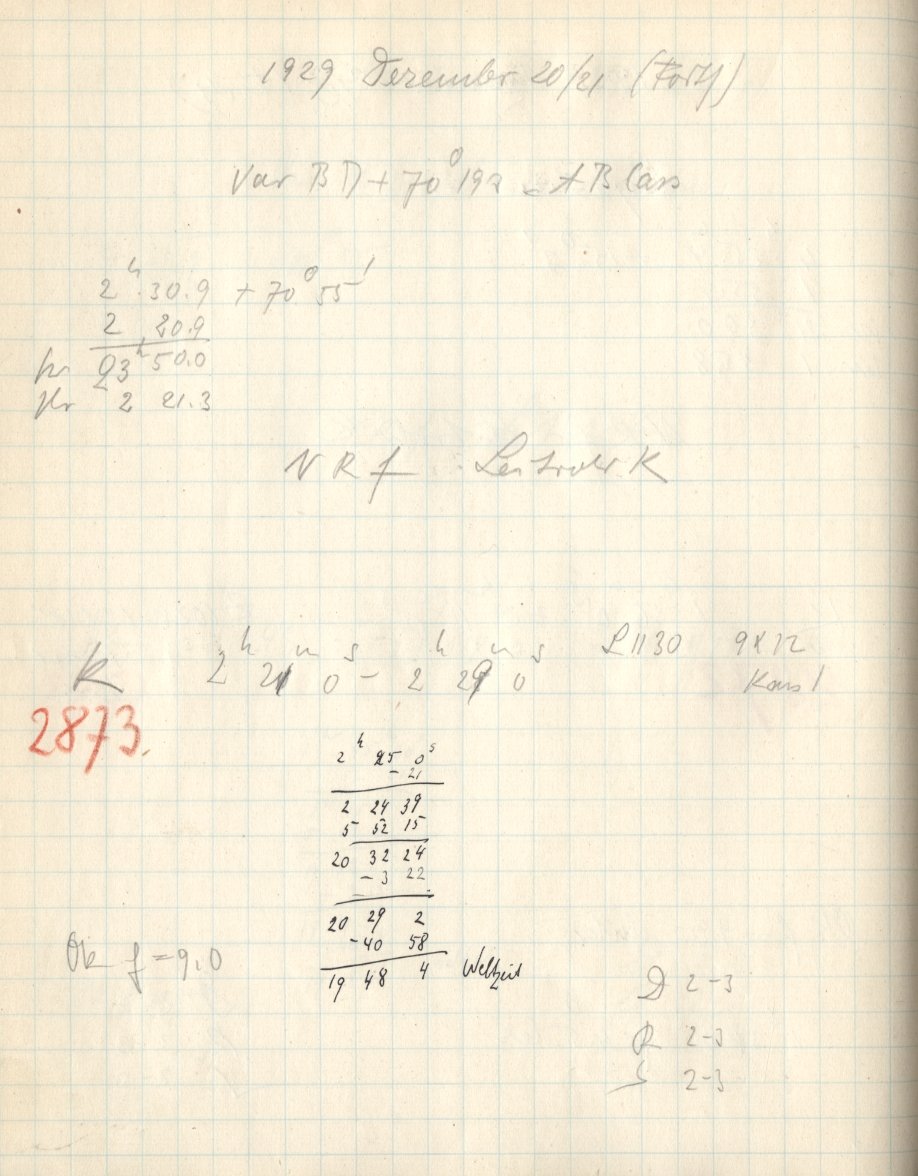 1929 Dezember 20/21 (Forts)
Var BD + 70° 192 = AB Cass
2ʰ 30.9 + 70° 55'
2 20.9
23ʰ 50.0
2 21.3
NRf : Leitrohr K
K 2ʰ 21ᵐ 0ˢ - 2ʰ 29ᵐ 0ˢ L 1130 9x12
Kass 1
2873.
2ʰ 25 0ˢ
- 21
2 24 39
5 52 15
20 32 24
- 3 22
20 29 2
- 40 58
19 48 4 Weltzeit
Ok f = 9,0
D 2-3
R 2-3
S 2-3